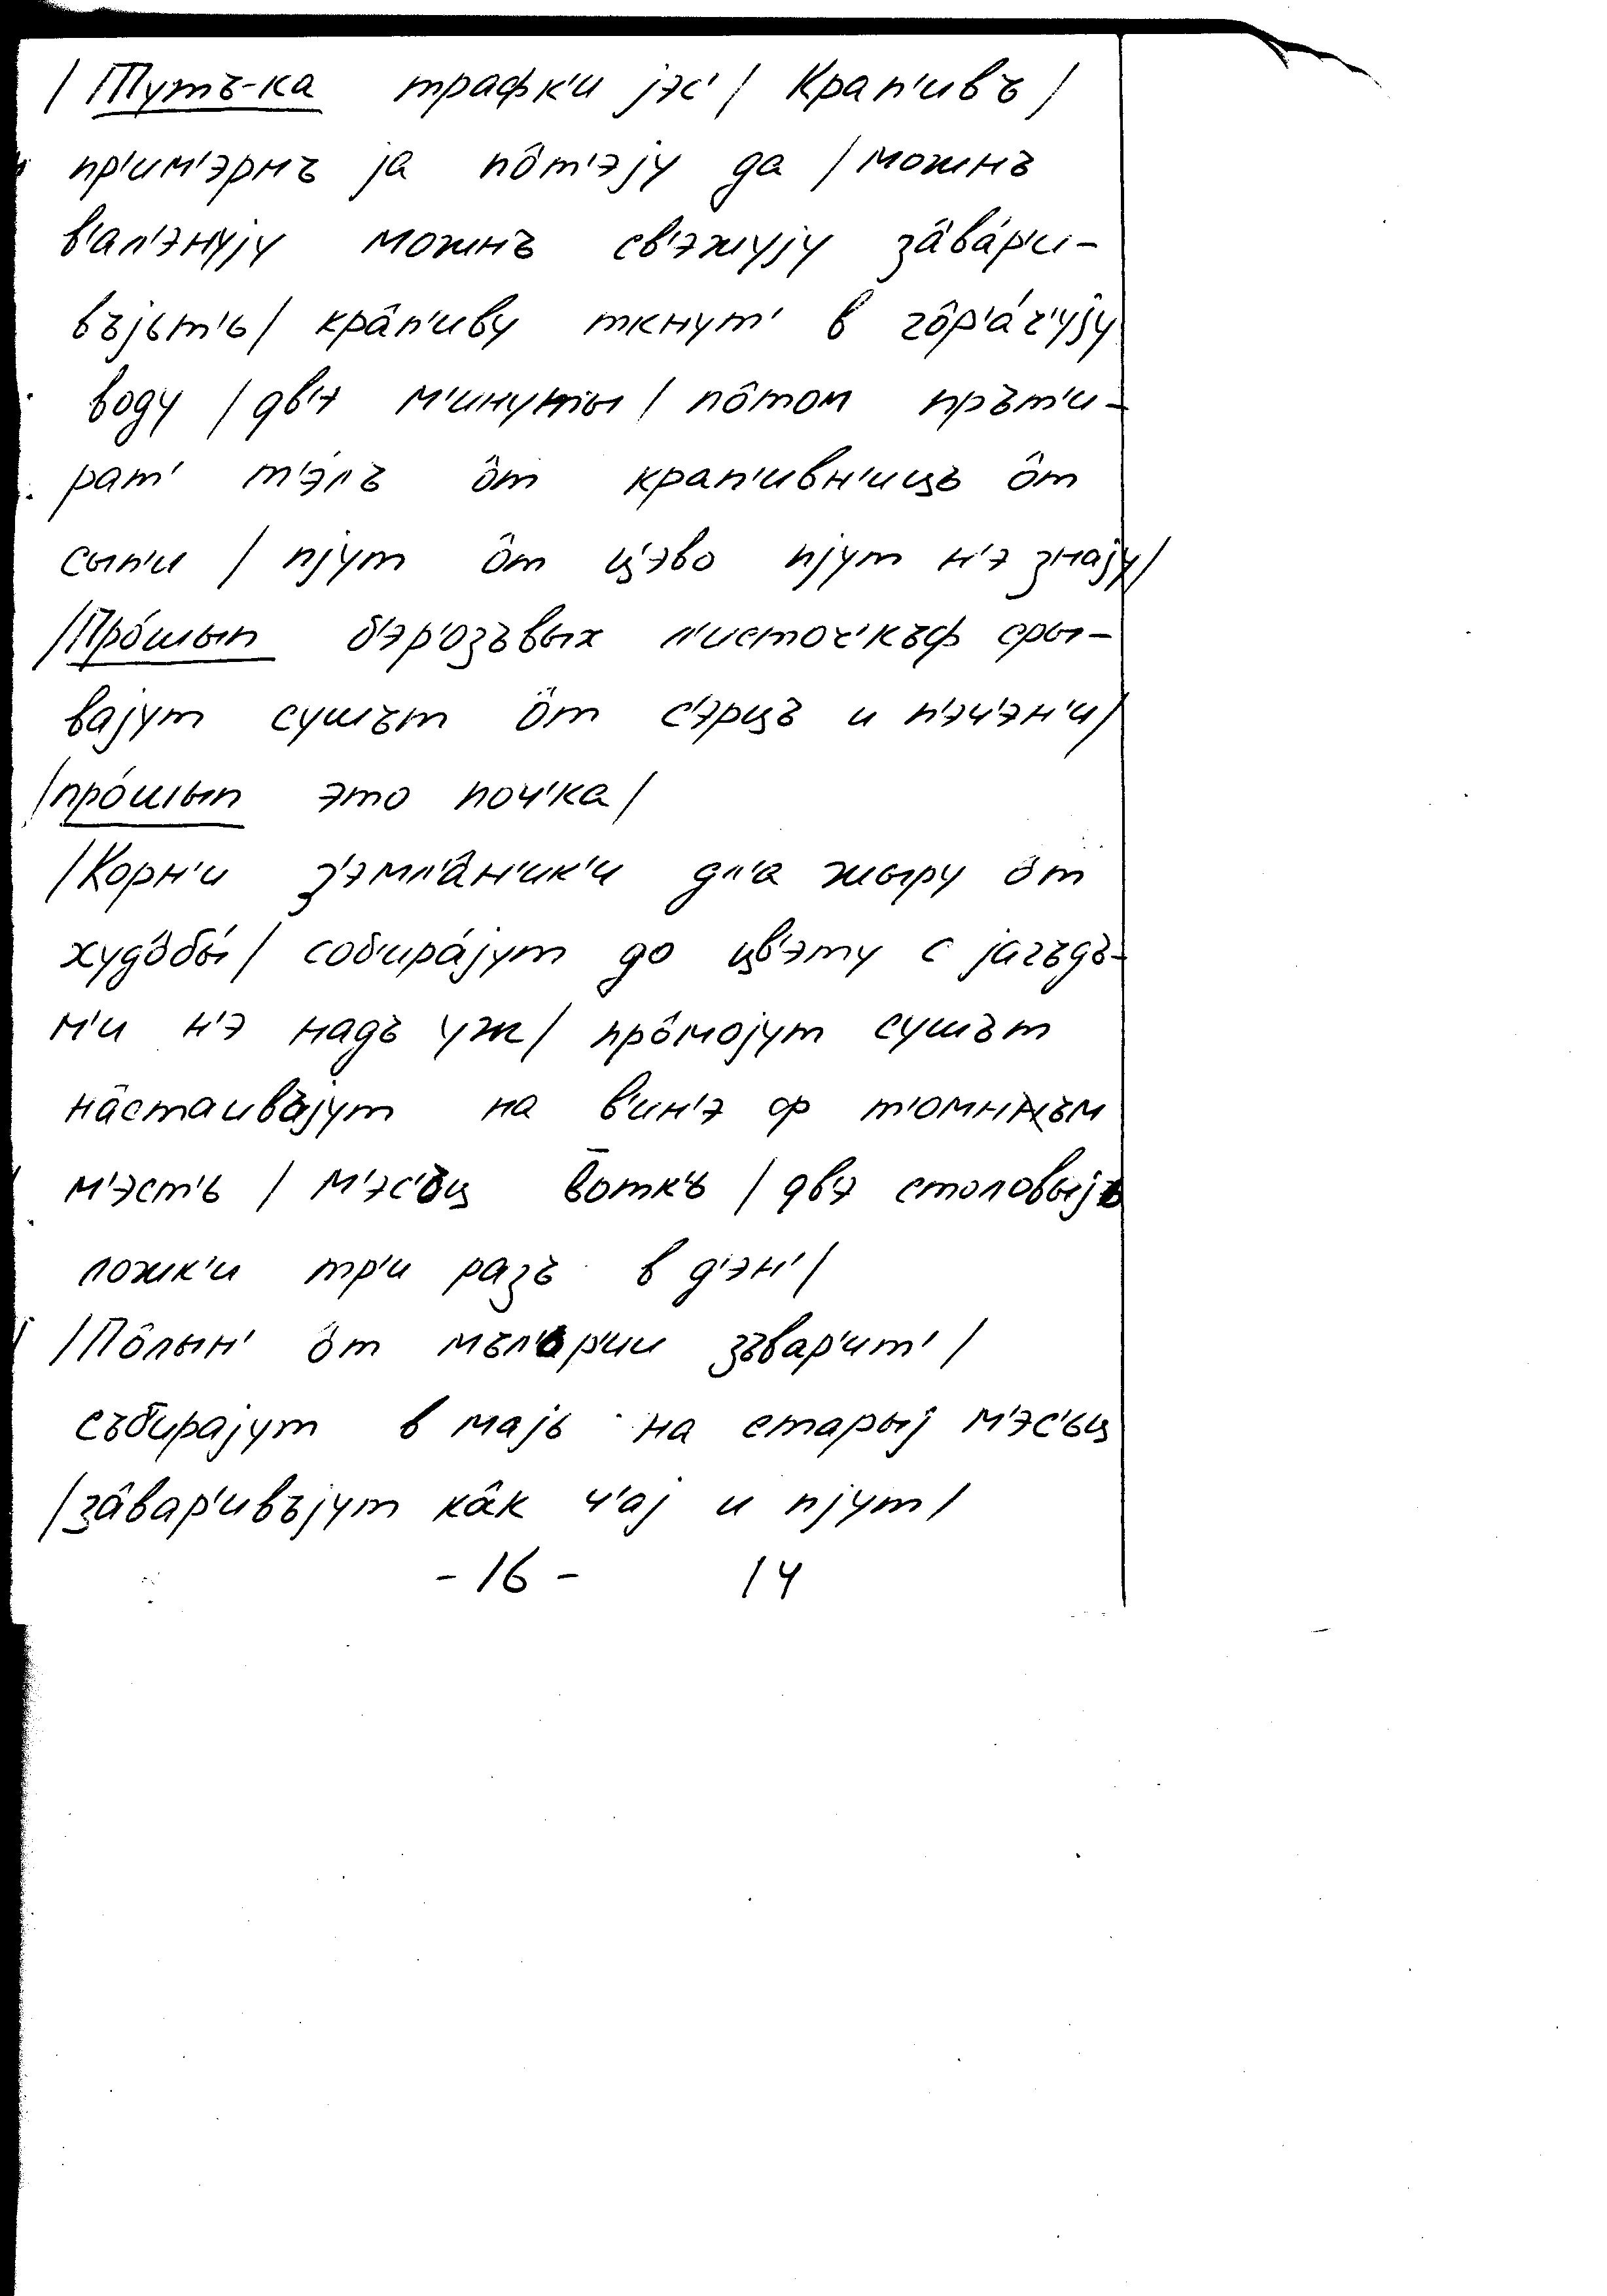 / Тутъ-ка трафк'и јэс' / Крап'ивъ /
пр'им'эрнъ ја по̂т'эју да / можнъ
в'ал'энују можнъ св'эжују за̂ва́р'и-
въјьт'ь / кра̂п'иву ткнут' в го̂р'а́ч'ују
воду / дв'э м'инуты / по̂том прът'и-
рат' т'элъ о̂т крап'ивн'ицъ о̂т
сып'и / пјут о̂т ц'эво пјут н'э знају /
/ Про́шып б'эр'озъвых л'источ'къф сры-
вајут сушът о̂т с'эрцъ и п'эч'эн'и /
/ про́шып это поч'ка /
/ Корн'и з'эмл'а̂н'ик'и дл'а жыру о̂т
худо̂бы́ / соб'ира́јут до цв'эту с јагъдъ-
м'и н'э надъ уж / про̂мојут сушът
на̂стаивајут на в'ин'э ф т'омнъм
м'эст'ь / м'эс'ьц воткъ / двэ столовыјь
ложк'и тр'и разъ в д'эн' /
/ По̂лын' о̂т мъл'ар'ии зъвар'ит' /
събирајут в мајь на старыј м'эс'ьц
/ за̂вар'ивъјут ка̂к ч'ај и пјут /
- 16 - 14